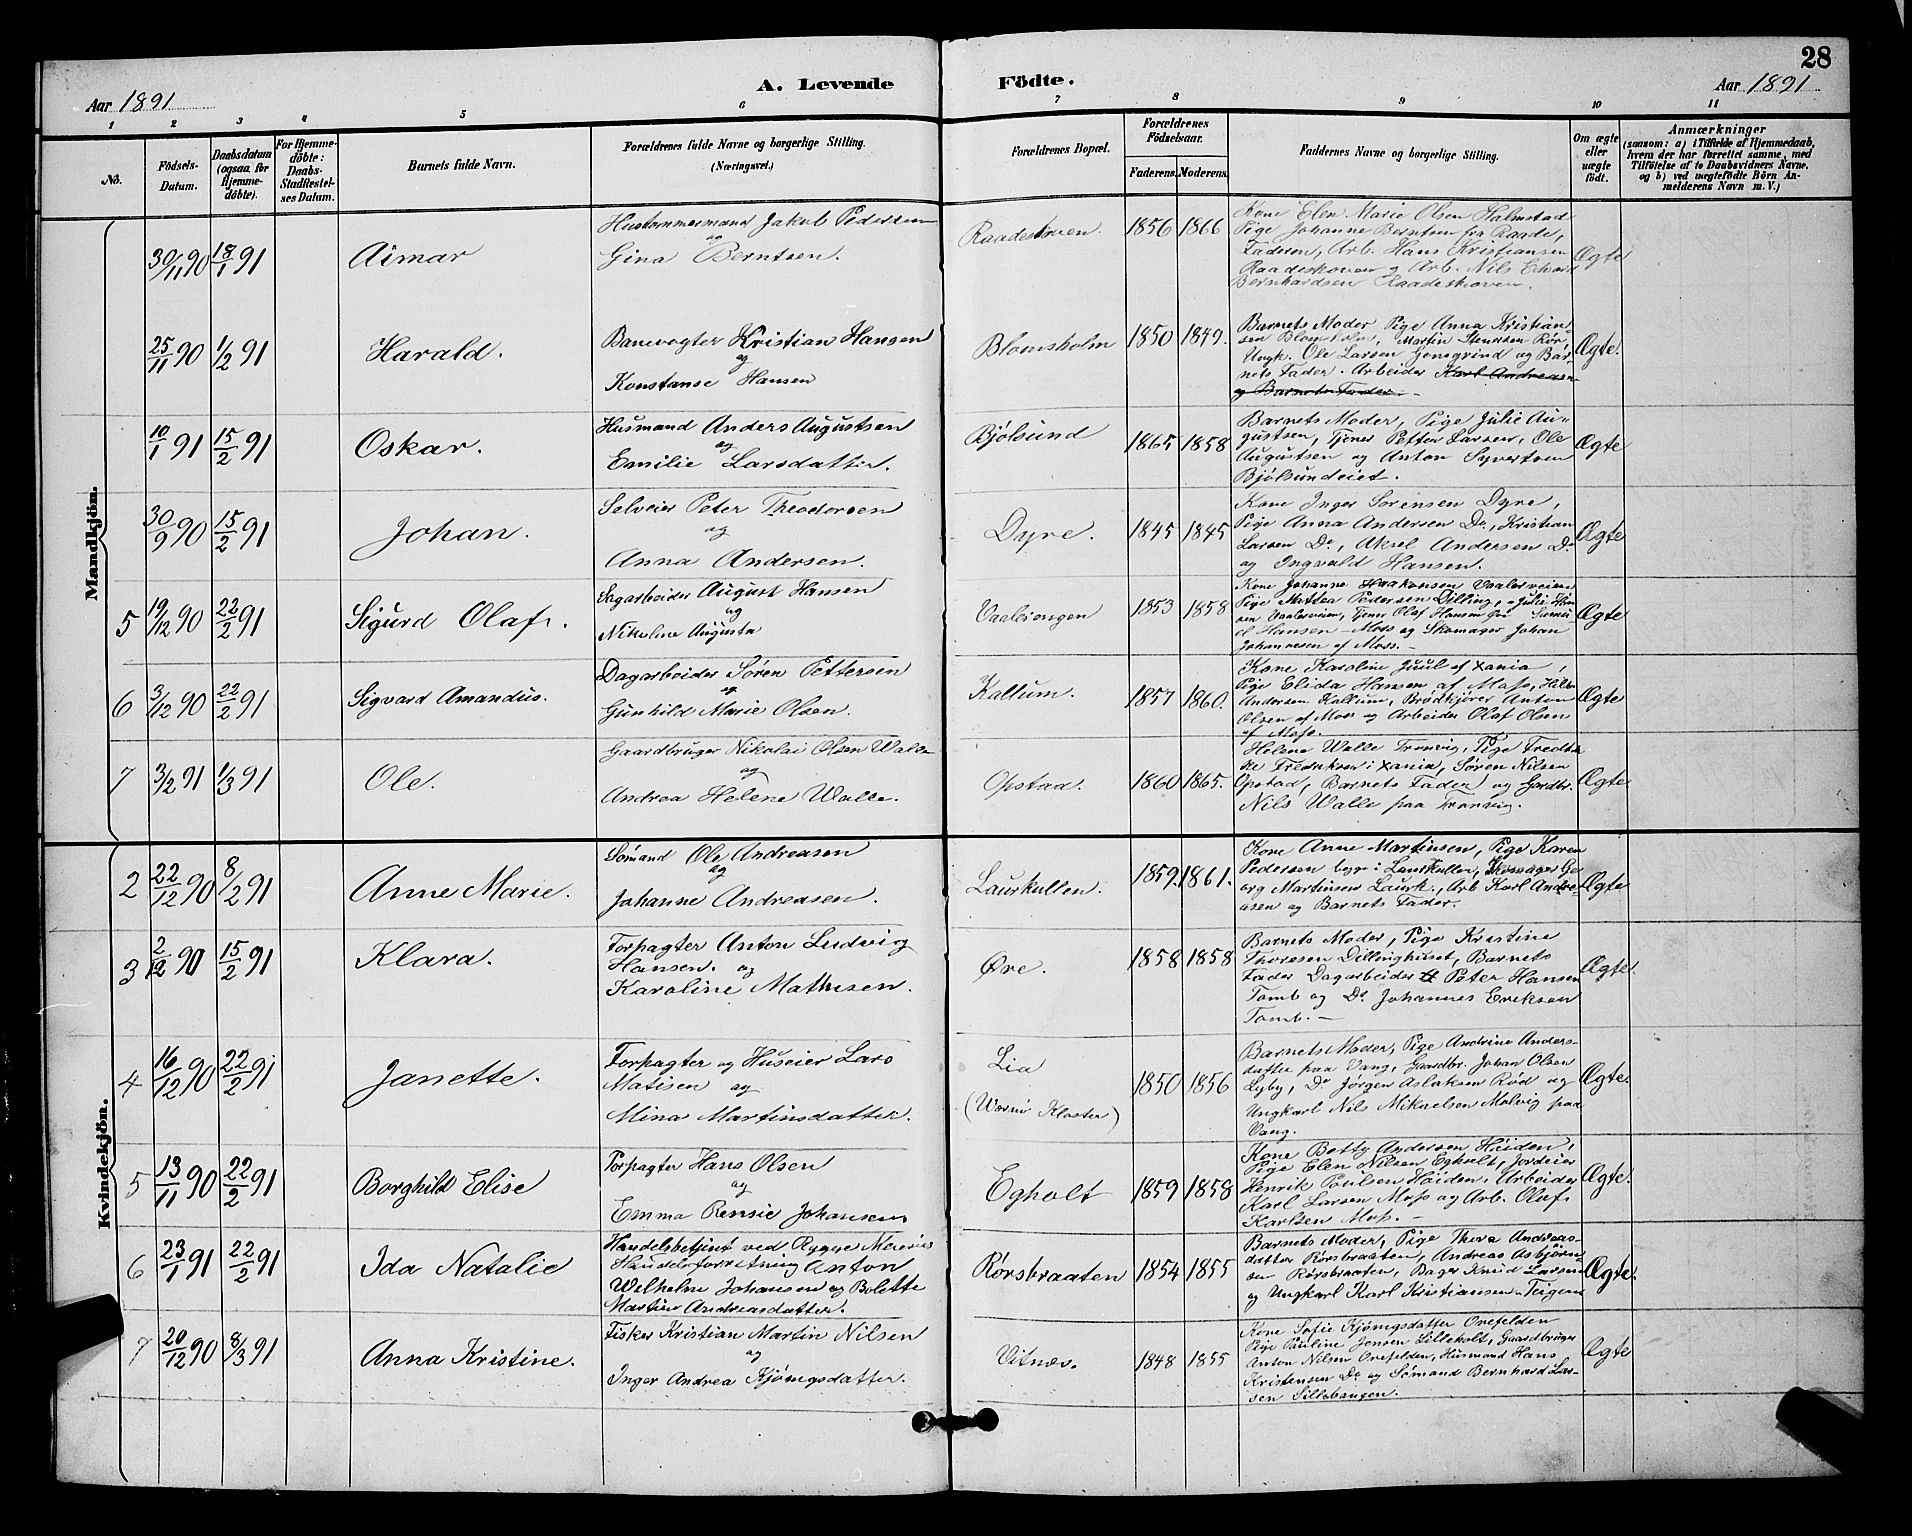 28
A. Levende Födte.
Aar 1891
Aar 1891
1 2 3 4 5 6 7 8 9 10 11
No.
Födsels-Datum.
Daabsdatum (ogsaa for Hjemmedöbte).
For Hjemmedöbte: Daabs-Stadfestelses Datum.
Barnets fulde Navn.
Forældrenes fulde Navne og borgerlige Stilling.
(Næringsvei.)
Forældrenes Bopæl.
Forældrenes Födselsaar.
Faderens. Moderens.
Faddernes Navne og borgerlige Stilling.
Om ægte eller uægte födt.
Anmærkninger
(saasom: a) i Tilfælde af Hjemmedaab,
hvem der har forrettet samme, med
Tilföielse af to Daabsvidners Navne.
og b) ved uegtefödte Börn An-
melderens Navn m. V.)
Mandkjön.
30/11 90 18/1 91 Aimar
Hustømmermand Jakob Pedersen
og
Gina Berntsen.
Raadeskoven 1856 1866
Kone Elen Marie Olsen Halmstad
Pige Johanne Berntsen fra Raade,
Faderen, Arb. Hans Kristiansen
Raadeskoven og Arb. Nils Edvard
Bernhardsen Raadeskoven.
Ægte
25/11 90 1/2 91 Harald.
Banevogter Kristian Hansen
og
Konstanse Hansen
Blomsholm 1850 1849.
Barnets Moder, Pige Anna Kristian-
sen Blomsholm, Martin Stensen Rör,
Ungk. Ole Larsen Gensgrind og Bar-
nets Fader. Arbeider Karl Andreasen
og Barnets Fader.
Ægte.
10/1 91 15/2 91 Oskar.
Husmand Anders Augustsen
og
Emilie Larsdatter.
Bjölsund 1865 1858
Barnets Moder, Pige Julie Au-
gustsen, Tjener Petter Larsen, Ole
Augustsen og Anton Syvertsen
Bjölsundeiet.
Ægte
30/9 90 15/2 91 Johan.
Selveier Peter Theodorsen
og
Anna Andersen.
Dyre. 1845 1845
Kone Inger Sorensen Dyre,
Pige Anna Andersen Do, Kristian
Larsen Do, Aksel Andersen Do
og Ingvald Hansen.
Ægte
5 19/12 90 22/2 91 Sigurd Olaf.
Sagarbeider August Hansen
og
Nikoline Augusta
Vaalerengen 1853 1858
Kone Johanne Haakonsen Vaalerveien
Pige Mattea Pedersen Dilling, Julie Han
sen Vaalerveien, Tjener Olaf Hansen Samu
el Hansen Moss og Skomager Johan
Johannesen af Moss.
Ægte
6 3/12 90 22/2 91 Sigvard Amandus.
Dagarbeider Sören Pettersen
og
Gunhild Marie Olsen.
Kallum. 1857 1860.
Kone Karoline Juul af Xania,
Pige Elida Hansen af Moss, Hilda
Andersen Kallum, Brödkjører Anton
Olsen af Moss og Arbeider Olaf Olsen
af Moss.
Ægte
7 3/2 91 1/3 91 Ole.
Gaardbruger Nikolai Olsen Walle
og
Andrea Helene Walle.
Opstad. 1860 1865.
Helene Walle Tronvig, Pige Fredrik
ke Fredriksen i Xania, Sören Nilsen
Opstad, Barnets Fader og Gardbr.
Nils Walle paa Tronvig.
Ægte
Kvindekjön.
2 22/12 90 8/2 91 Anne Marie.
Sømand Ole Andreasen
og
Johanne Andreasen.
Laurkullen. 1859. 1861.
Kone Anne Martinsen, Pige Karen
Pedersen begge i Laurkullen, Skomager Ge-
org Martinsen Laurk., Arb. Karl Andre-
asen og Barnets Fader.
Ægte
3 2/12 90 15/2 91 Klara.
Forpagter Anton Ludvig
Hansen. og
Karoline Mathisen.
Øre. 1858 1858
Barnets Moder, Pige Kristine
Thoresen Dillinghuset, Barnets
Fader Dagarbeider Peter Hansen
Tomb og Do Johannes Eriksen
Tomb.
Ægte.
4 16/12 90 22/2 91 Janette.
Forpagter og Huseier Lars
Matisen og
Mina Martinsdatter.
Lia
(Værne Kloster)
1850 1856
Barnets Moder, Pige Andrine Anders-
datter paa Vang, Gaardbr. Johan Olsen
Lyby, Do Jørgen Aslaksen Rød og
Ungkarl Nils Mikaelsen Molvig paa
Vang.
Ægte.
5 13/11 90 22/2 91 Borghild Elise
Forpagter Hans Olsen
og
Emma Rensie Johansen
Egholt 1859 1858
Kone Betty Andersen Høiden,
Pige Elen Nilsen Egholt, Jordeier
Henrik Paulsen Høiden, Arbeider
Karl Larsen Moss og Arb. Olaf
Karlsen Moss.
Ægte.
6 23/1 91 22/2 91 Ida Natalie
Handelsbetjent ved Rygge Meieries
Handelsforretning Anton
Wilhelm Johansen og Bolette
Martine Andreasdatter.
Rørsbraaten 1854 1855
Barnets Moder, Pige Thora Andreas-
datter Rørsbraaten, Andreas Asbjørn-
sen Rørsbraaten, Bager Knud Larsen
og Ungkarl Karl Kristiansen Teigen
Ægte.
7 20/12 90 8/3 91 Anna Kristine.
Fisker Kristian Martin Nilsen
og
Inger Andrea Kjønigsdatter.
Vitnæs. 1848 1855
Kone Sofie Kjønigsdatter Orefelden
Pige Pauline Jensen Lilleholt, Gaardbruger
Anton Nilsen Orefelden, Husmand Hans
Kristensen Do og Sømand Bernhard Lar-
sen Sillebaugen.
Ægte